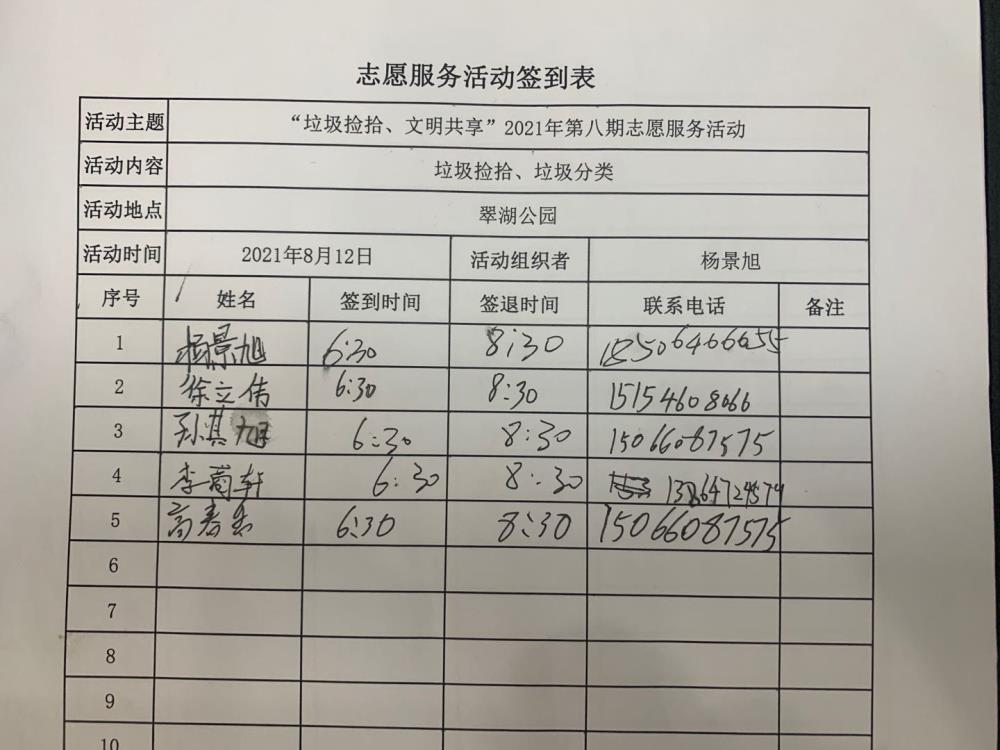 志愿服务活动签到表
活动主题 “垃圾捡拾、文明共享”2021年第八期志愿服务活动
活动内容 垃圾捡拾、垃圾分类
活动地点 翠湖公园
活动时间 2021年8月12日 活动组织者 杨景旭
序号 姓名 签到时间 签退时间 联系电话 备注
1 杨景旭 6:30 8:30
2 徐立伟 6:30 8:30 15154608066
3 孙其旭 6:30 8:30 15066087575
4 6:30 8:30
5 6:30 8:30 15066087575
6
7
8
9
10